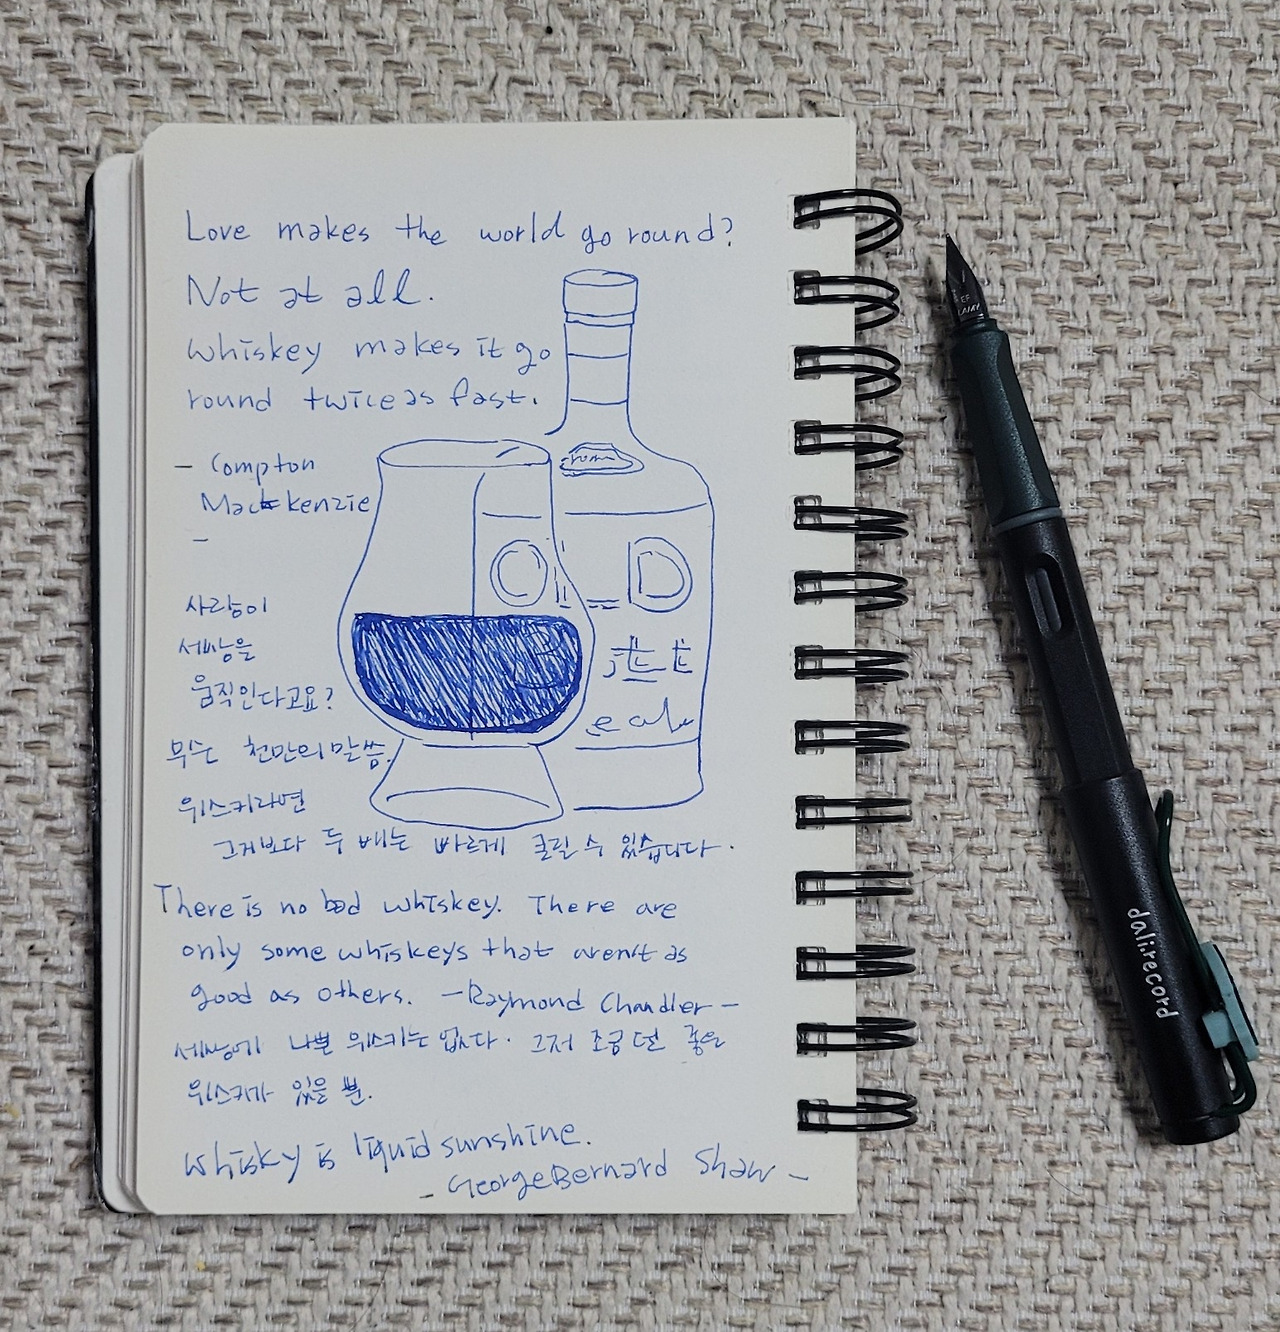 Love makes the world go round?
Not at all.
whiskey makes it go
round twice as fast.
- Compton
Mackenzie
-
사랑이
세상을
움직인다고요?
무슨 천만의 말씀.
위스키라면
그거보다 두 배는 빠르게 굴릴 수 있습니다.
There is no bad whiskey. There are
only some whiskeys that aren't as
good as others. -Raymond Chandler-
세상에 나쁜 위스키는 없다. 그저 조금 덜 좋은
위스키가 있을 뿐.
whisky is liquid sunshine.
- George Bernard Shaw -
O D
EF
LAMY
dali.record